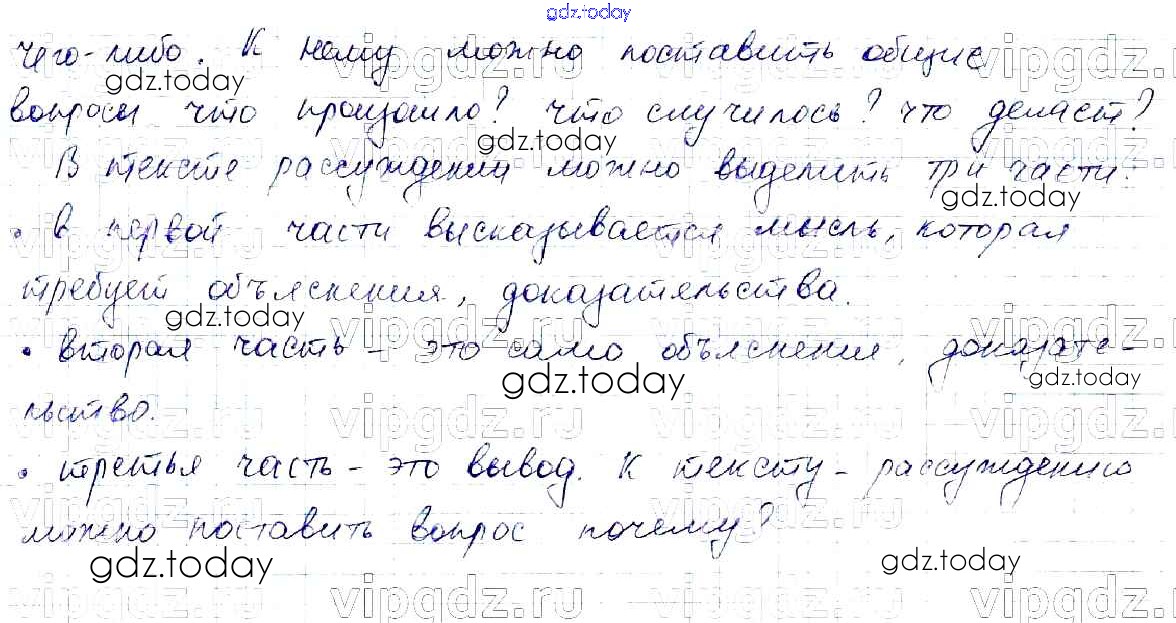 gdz.today
чего-либо. К нему можно поставить общие
gdz.today
вопросы что произошло? что случилось? что делает?
gdz.today
В тексте рассуждении можно выделить три части:
gdz.today
• в первой части высказывается мысль, которая
требует объяснения, доказательства.
gdz.today
vipgdz.ru
• вторая часть – это само объяснение, доказате-
gdz.today
gdz.today
льство.
vipgdz.ru
• третья часть – это вывод. К тексту – рассуждению
можно поставить вопрос почему?
gdz.today
gdz.today
vipgdz.ru